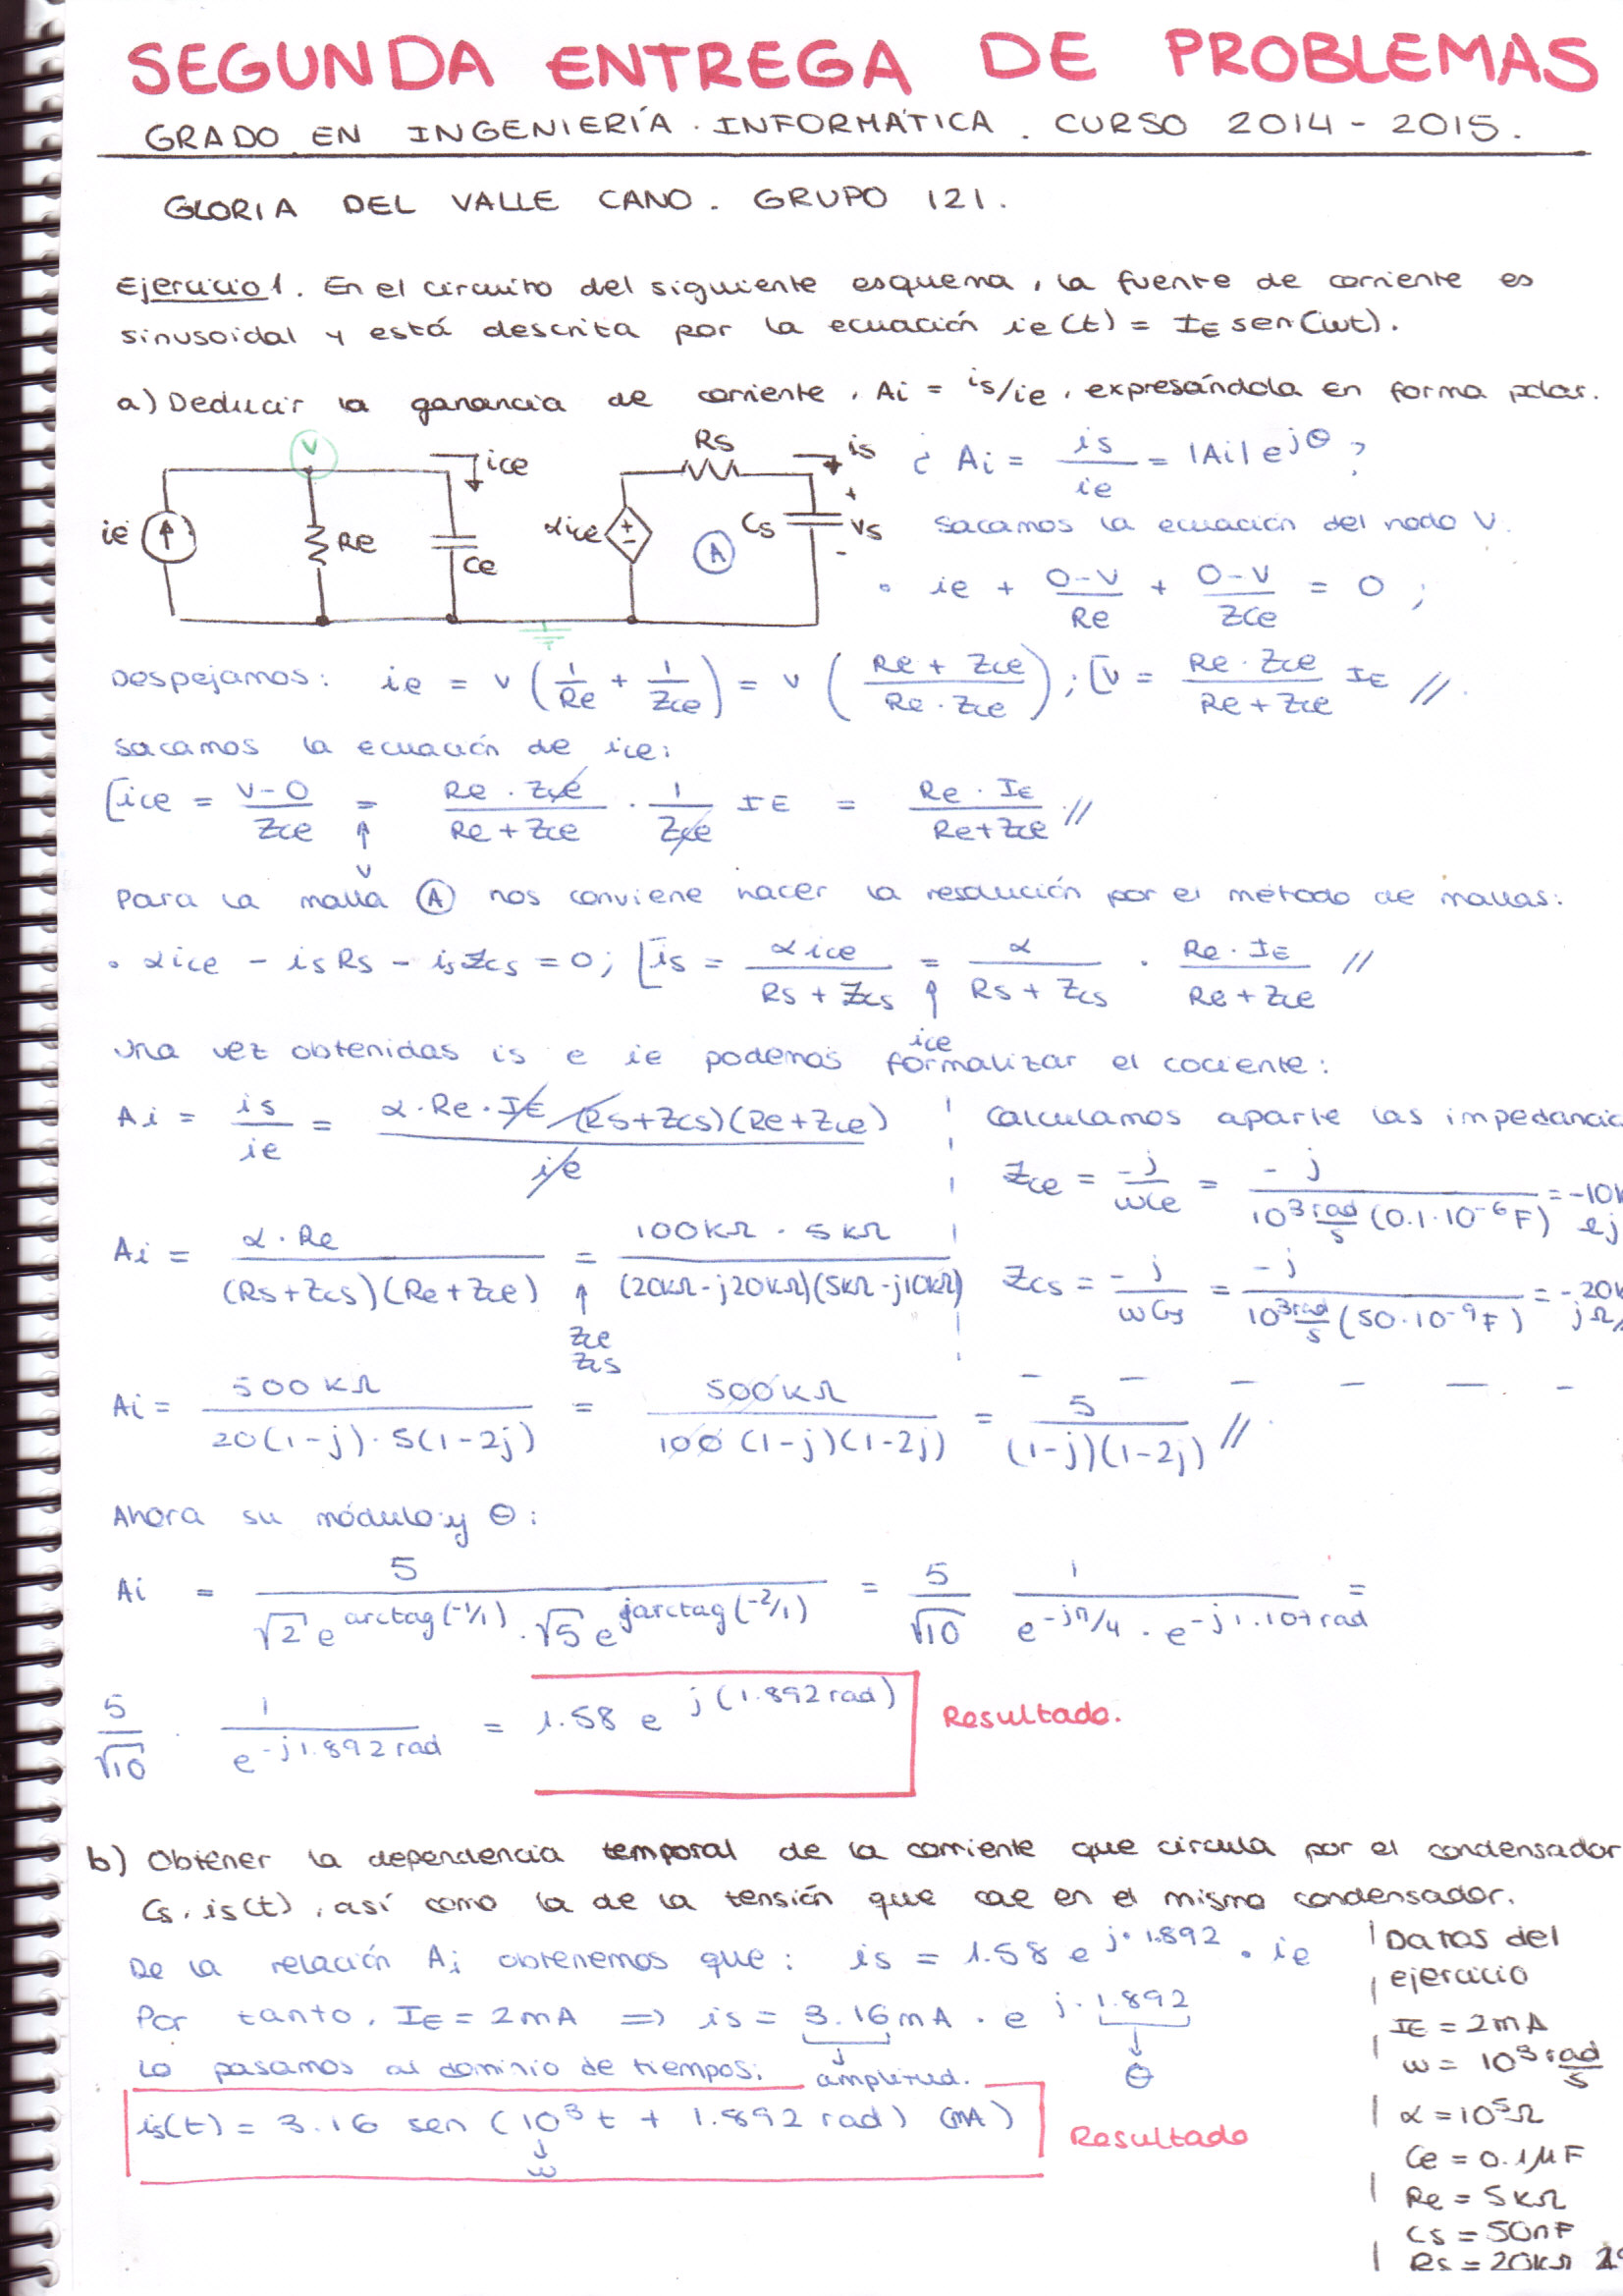 SEGUNDA ENTREGA DE PROBLEMAS
GRADO EN INGENIERÍA INFORMÁTICA. CURSO 2014-2015.
GLORIA DEL VALLE CANO. GRUPO 121.
Ejercicio 1. En el circuito del siguiente esquema, la fuente de corriente es
sinusoidal y está descrita por la ecuación ie(t) = IE sen(ωt).
a) Deducir la ganancia de corriente, Ai = is/ie, expresándola en forma polar.
V ice Rs is
ie Re Ce αice + - A Cs + vs -
¿ Ai = is/ie = |Ai| e^jΘ ?
Sacamos la ecuación del nodo V.
• ie + (0-V)/Re + (0-V)/Zce = 0 ;
Despejamos: ie = v (1/Re + 1/Zce) = v ((Re + Zce)/(Re · Zce)) ; [v = (Re · Zce)/(Re + Zce) IE //.
Sacamos la ecuación de ice:
[ice = (V-0)/Zce = (Re · Zce)/(Re + Zce) · 1/Zce IE = (Re · IE)/(Re+Zce) //
↑ v
Para la malla A nos conviene hacer la resolución por el método de mallas:
• αice - isRs - isZcs = 0; [is = αice/(Rs + Zcs) = α/(Rs + Zcs) · (Re · IE)/(Re + Zce) //
↑ ice
Una vez obtenidas is e ie podemos formalizar el cociente:
Ai = is/ie = α·Re·IE/(Rs+Zcs)(Re+Zce) / ie
Calculamos aparte las impedancia
Zce = -j/ωCe = -j/(10^3 rad/s (0.1·10^-6 F)) = -10k
Ai = α·Re/((Rs+Zcs)(Re+Zce)) = 100KΩ · 5KΩ/((20KΩ-j20KΩ)(5KΩ-j10KΩ))
↑ Zce Zcs
Zcs = -j/ωCs = -j/(10^3 rad/s (50·10^-9 F)) = -20k jΩ
Ai = 500KΩ/(20(1-j)·5(1-2j)) = 500KΩ/(100(1-j)(1-2j)) = 5/((1-j)(1-2j)) //
Ahora su módulo y Θ:
Ai = 5/(√2 e^arctag(-1/1) · √5 e^jarctag(-2/1)) = 5/√10 1/(e^-jπ/4 · e^-j1.107rad) =
5/√10 · 1/(e^-j1.892rad) = 1.58 e^j(1.892rad) Resultado.
b) Obtener la dependencia temporal de la corriente que circula por el condensador
Cs, is(t), así como la de la tensión que cae en el mismo condensador.
De la relación Ai obtenemos que: is = 1.58 e^j·1.892 · ie
Por tanto, IE = 2mA => is = 3.16mA · e^j·1.892
Lo pasamos al dominio de tiempos: amplitud. Θ
is(t) = 3.16 sen (10^3 t + 1.892 rad) (mA) Resultado
↓ ω
Datos del
ejercicio
IE = 2mA
ω = 10^3 rad/s
α = 10^5 Ω
Ce = 0.1μF
Re = 5KΩ
Cs = 50nF
Rs = 20KΩ